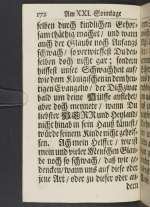 172 Am XXI. Sonntage
selben durch kindlichen Gehor-
sam thätig machet / und wann
auch der Glaube noch Anfangs
schwach / so verwirffest Du den-
selben doch nicht gar / sondern
hilffest unser Schwachheit auf /
wie dem Königischen im heu-
tigen Evangelio / der Dich zwar
bald um deine Hülffe
aber doch meynete / wann Du
liebster HErr und Heyland /
nicht hinab in sein Hauß kämest /
würde seinem Kinde nicht gehol-
fen. Ach mein Helffer / wie ist
mein und vieler Menschen Glau-
be noch so schwach / daß wir ge-
dencken / wann uns auf diese oder
jene Art / oder zu dieser oder an-
dern